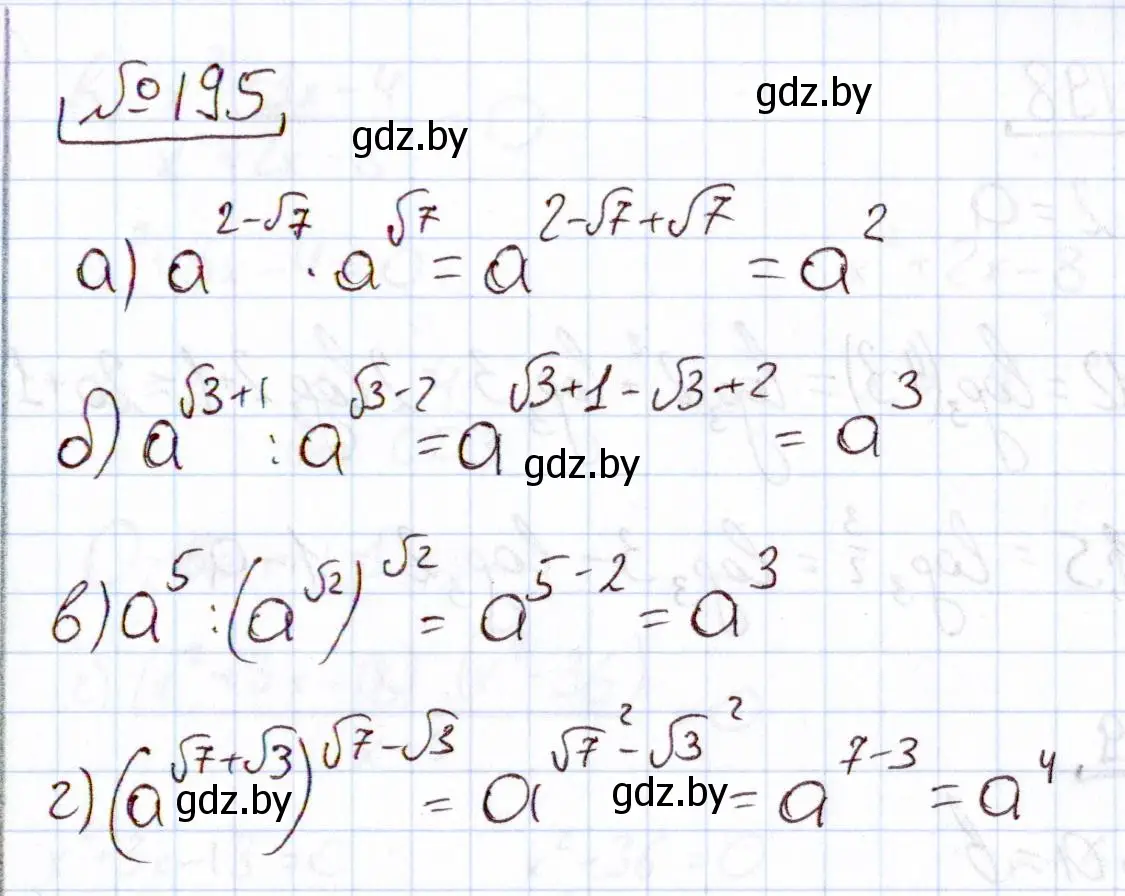 №195
gdz.by
gdz.by
а) a^{2-√7} · a^{√7} = a^{2-√7+√7} = a^2
б) a^{√3+1} : a^{√3-2} = a^{√3+1-√3+2} = a^3
gdz.by
в) a^5 : (a^{√2})^{√2} = a^{5-2} = a^3
г) (a^{√7+√3})^{√7-√3} = a^{√7^2-√3^2} = a^{7-3} = a^4.
gdz.by
gdz.by